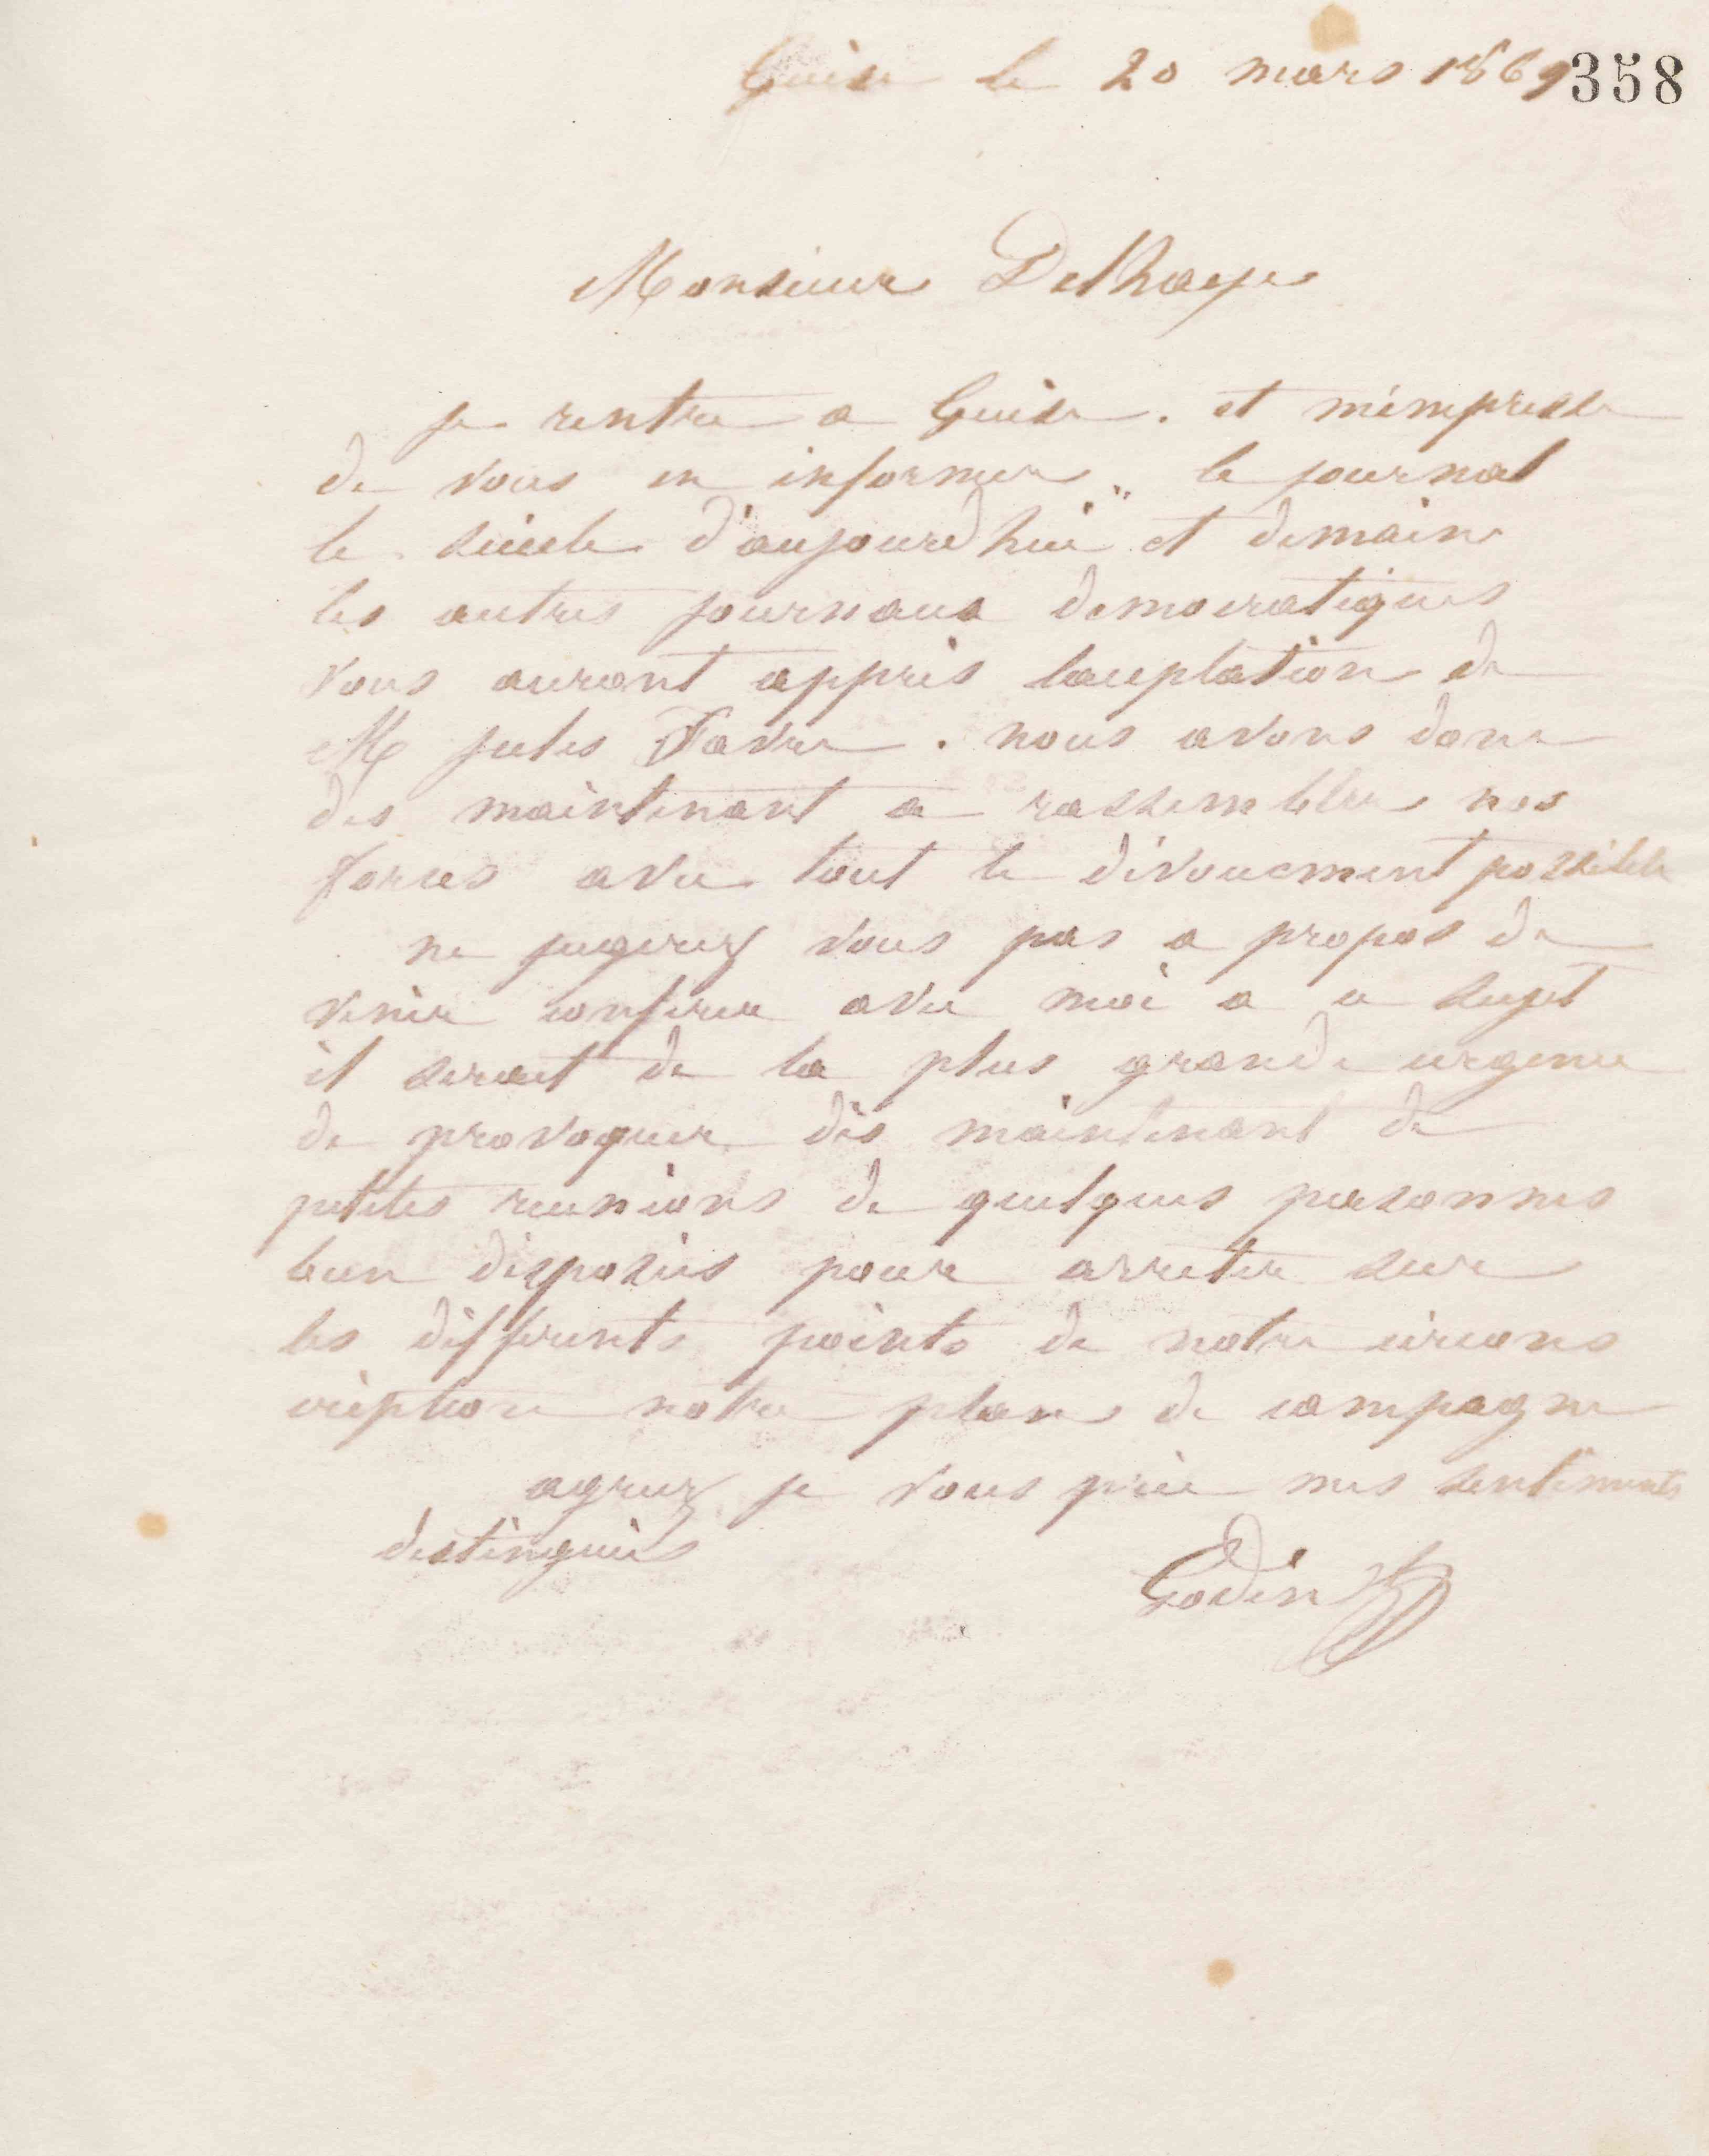 Guise le 20 mars 1869 358
Monsieur Delhaye
je rentre a Guise. et m'empresse
de vous en informer „ le journal
le siècle d'aujourd'hui" et demain
les autres journaux democratiques
vous auront appris l'acceptation de
M Jules Favre. nous avons donc
des maintenant a rassembler nos
forces avec tout le dévouement possible
ne jugerez vous pas a propos de
venir conferer avec moi a ce sujet
il serait de la plus grande urgence
de provoquer dès maintenant de
petites reunions de quelques personnes
bien disposées pour arreter sur
les differents points de notre circons
cription notre plan de campagne
agreez je vous prie mes sentiments
distingués
Godin